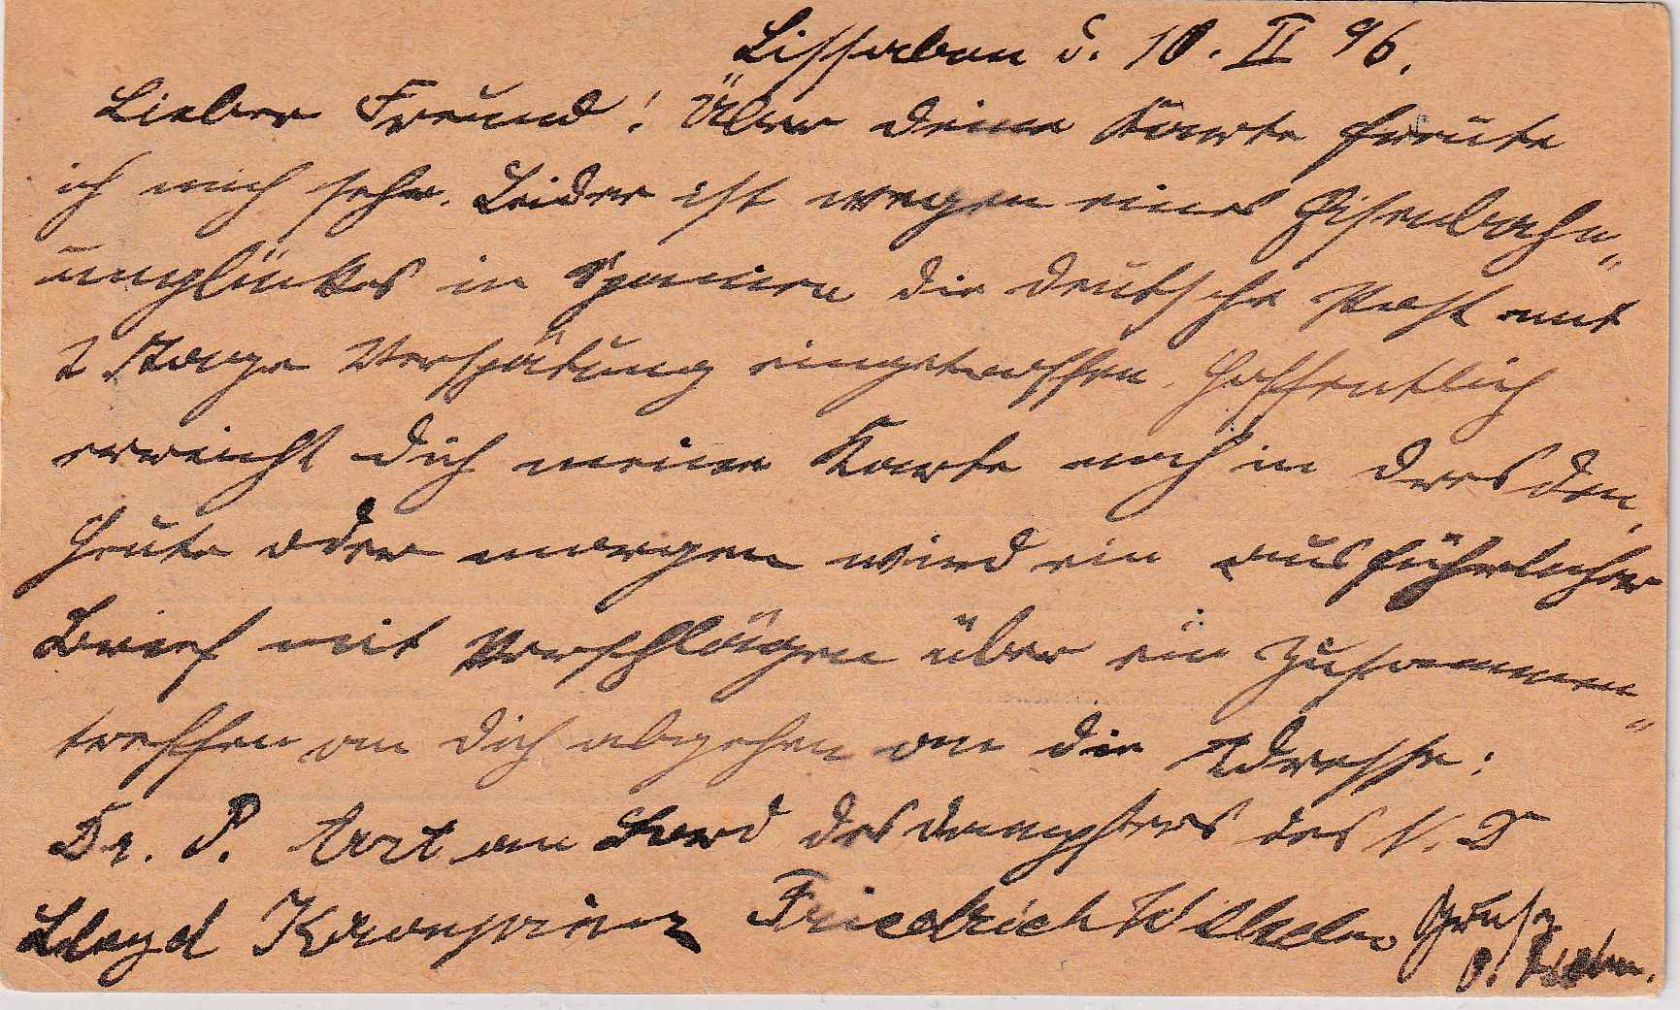 Lissabon d. 10. II 96.
Lieber Freund! Über deine Karte freute
ich mich sehr. Leider ist wegen eines Eisenbahn„
unglückes in Spanien die deutsche Post mit
2 Tage Verspätung eingetroffen. Hoffentlich
erreicht dich meine Karte noch in Dresden,
heute oder morgen wird ein ausführlicher
Brief mit Vorschlägen über ein Zusammen„
treffen an dich abgehen an die Adresse:
Dr. P. Arzt an Bord des Dampfers des N. D
Lloyd Kronprinz Friedrich Wilhelm Gruß
P.